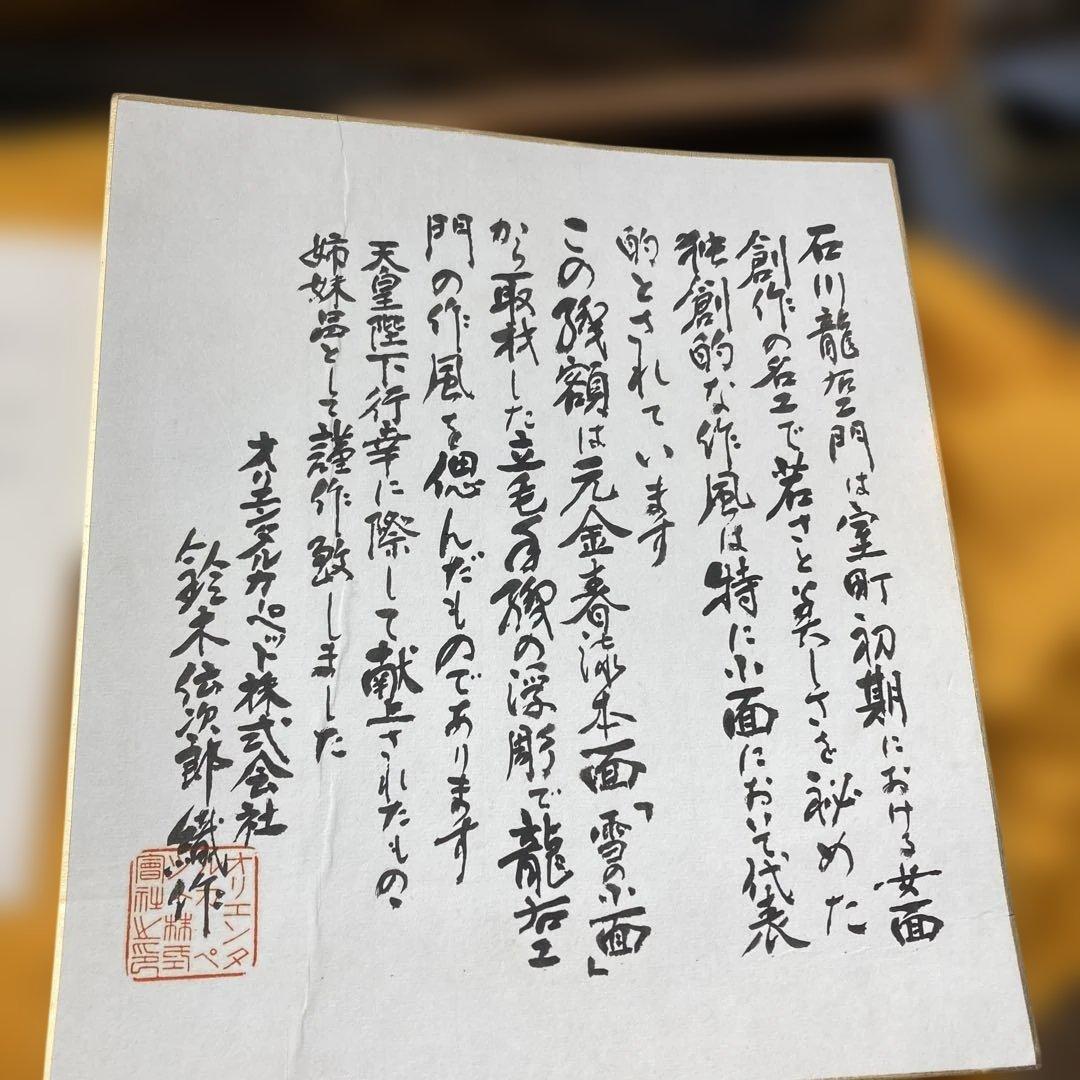 石川龍右エ門は室町初期における女面
創作の名工で若さと美しさを秘めた
独創的な作風は特に小面において代表
的とされています
この緞額は元金春流本面「雪の小面」
から取材した立毛手緞の浮彫で龍右エ
門の作風を偲んだものであります
天皇陛下行幸に際して献上されたもの
姉妹品として謹作致しました
オリエンタルカペット株式会社
鈴木伝次郎 織作
オリエンタ
ペ
株式
會社之印